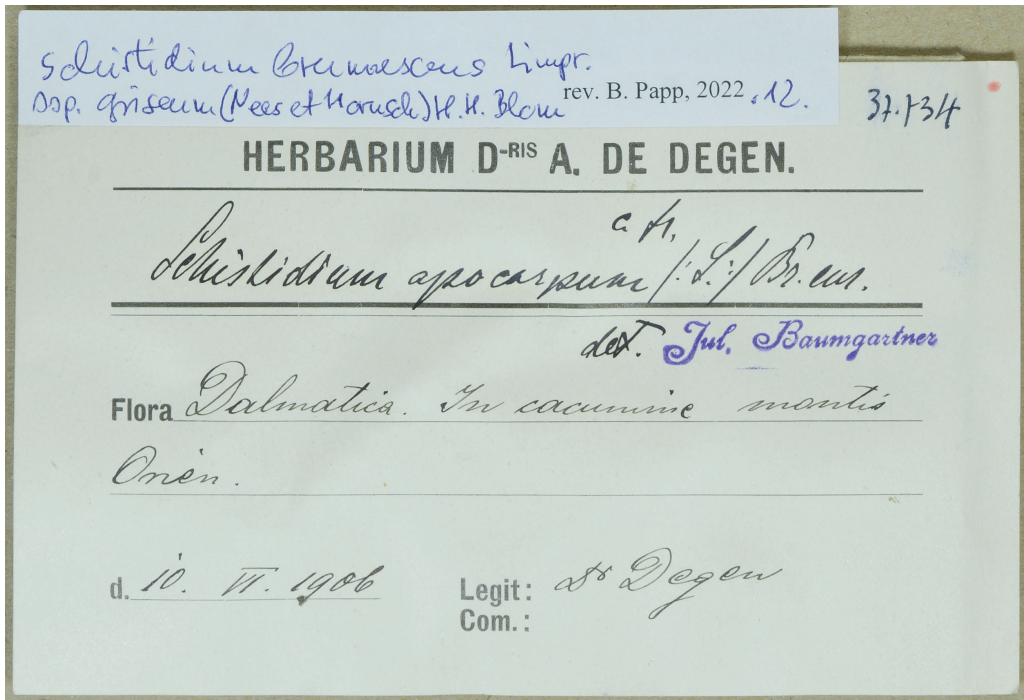 Schistidium brunnescens Limpr.
ssp. griseum (Nees et Hornsch) H.H. Blom rev. B. Papp, 2022 .12.
HERBARIUM D-RIS A. DE DEGEN.
c. fr.
Schistidium apocarpum /:L:/ Br. eur.
det. Jul. Baumgartner
Flora Dalmatica. In cacumine montis
Orien.
d. 10. VI. 1906 Legit: Dr Degen
Com.: